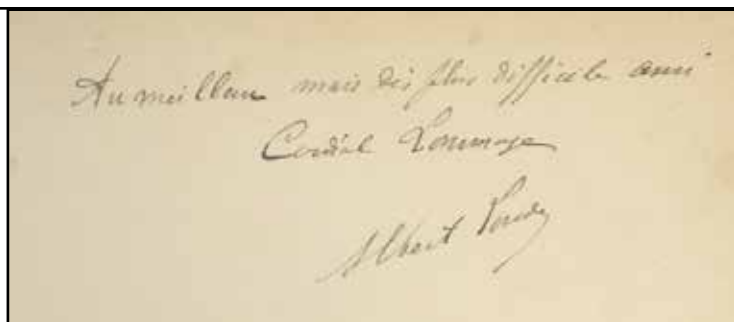 Au meilleur mais des plus difficile ami
Cordial hommage
Albert Londe